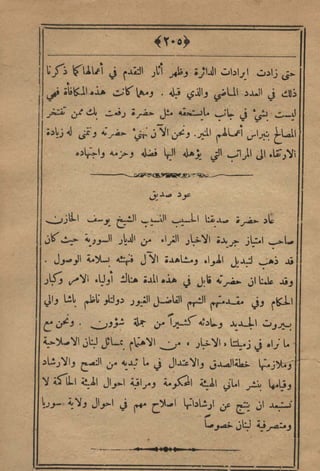 ﴿٢٠٥﴾
حتى زادت ايرادات الدائرة وظهر أثار التقدم في أعمالها كما ذكرنا
ذلك في العدد الماضي والذي قبله . ومهما كانت هذه المكافأة فهي
ليست بشيء في جانب مايستحقه مثل حضرة رفعت بك ممن تفتخر
المصالح بنبراس أعمالهم المنير. ونحن الآن نهنئ حضرته ونتمنى له زيادة
الارتقاء الى المراتب التي يؤهله اليها فضله وحزمه واجتهاده
عود صديق
عاد حضرة صديقنا الحسيب النسيب الشيخ يوسف الخازن
صاحب امتياز جريدة الاخبار الغراء من الديار السورية حيث كان
قد ذهب لتبديل الهواء ومشاهدة الآل فنهنئه بسلامة الوصول .
وقد علمنا ان حضرته قابل في هذه المدة هناك أولياء الامر وكبار
الحكام وفي مقدمتهم الشهم الفاضل الغيور دولتلو ناظم باشا والي
بيروت الجديد وحادثه كثيراً من جملة شؤون . ونحن مع
ما نراه في زميلتنا «الاخبار» من الاهتمام بمسائل لبنان الاصلاحية
وملازمتها خطة الصدق والاعتدال في ما تبديه من النصح والارشاد
وقيامها بنشر اماني الهيئة المحكومة ومراقبة احوال الهيئة الحاكمة لا
نستبعد ان ينتج عن ارشاداتها اصلاح مهم في احوال ولاية سوريا
ومتصرفية لبنان خصوصاً